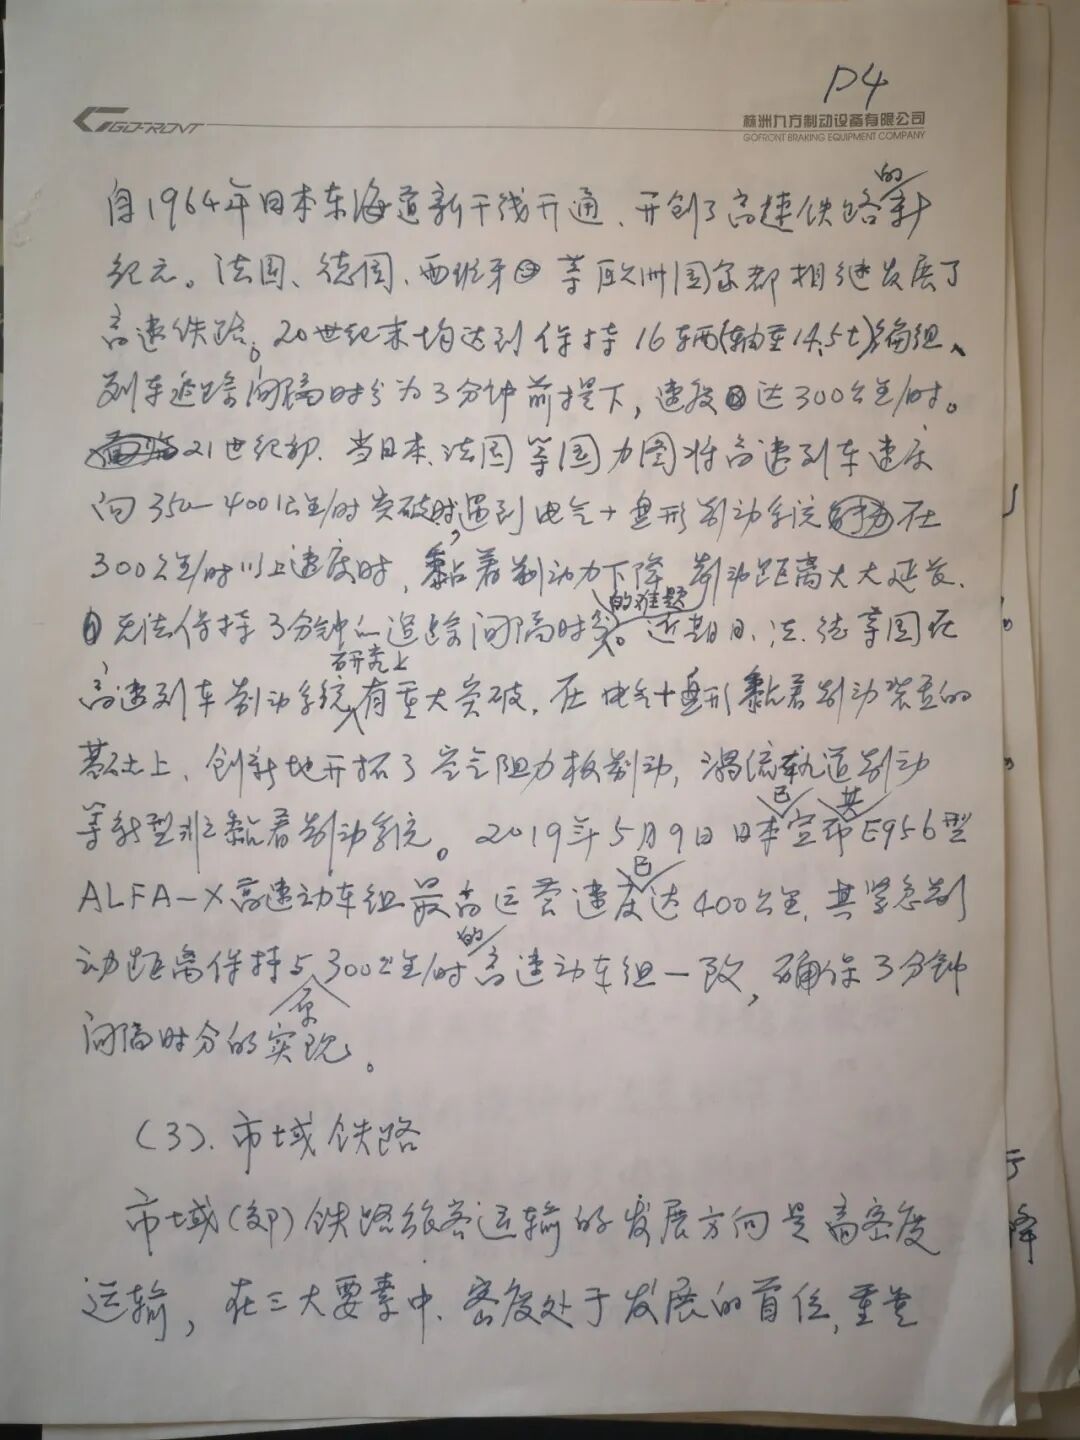 P4
GOFRONT
株洲九方制动设备有限公司
GOFRONT BRAKING EQUIPMENT COMPANY
自1964年日本东海道新干线开通、开创了高速铁路的新
纪元。法国、德国、西班牙等欧洲国家都相继发展了
高速铁路。20世纪末均达到保持16辆(轴重14.5t)编组、
列车追踪间隔时分为3分钟前提下,速度达300公里/时。
21世纪初、当日本、法国等国力图将高速列车速度
向350-400公里/时突破时,遇到电气+盘形制动系统在
300公里/时以上速度时,黏着制动力下降,制动距离大大延长、
无法保持3分钟的追踪间隔时分的难题。近期日、法、德等国在
高速列车制动系统研究上有重大突破,在电气+盘形黏着制动装置的
基础上、创新地开拓了空气阻力板制动,涡流轨道制动
等新型非黏着制动系统。2019年5月9日日本已宣布其E956型
ALFA-X高速动车组最高运营速度已达400公里,其紧急制
动距离保持与原300公里/时的高速动车组一致,确保3分钟
间隔时分的实现。
(3)、市域铁路
市域(郊)铁路旅客运输的发展方向是高密度
运输,在三大要素中、密度处于发展的首位,重量